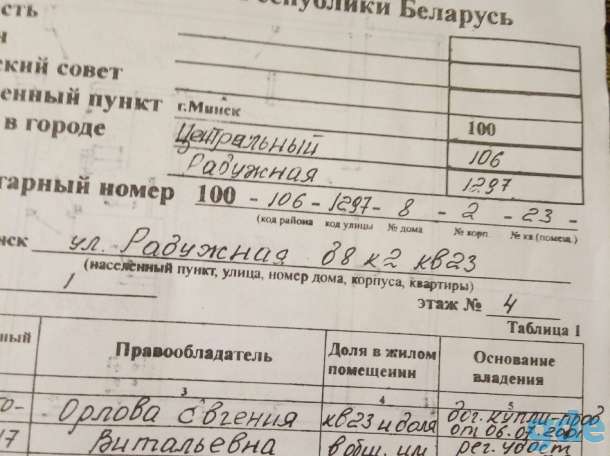 еспублики Беларусь
сть
н
ский совет
енный пункт г.Минск 100
в городе Центральный 106
Радужная 1297
тарный номер 100 - 106 - 1297 - 8 - 2 - 23 -
(код района код улицы № дома № корп. № кв (помещ.)
нск ул. Радужная д8 к2 кв23
(населённый пункт, улица, номер дома, корпуса, квартиры)
1 этаж № 4
Таблица 1
ный Правообладатель Доля в жилом помещении Основание владения
3 4 5
Орлова Евгения кв23 и доля дог. купли-прод
17 Витальевна в общ. им от 06.07.2001
gde